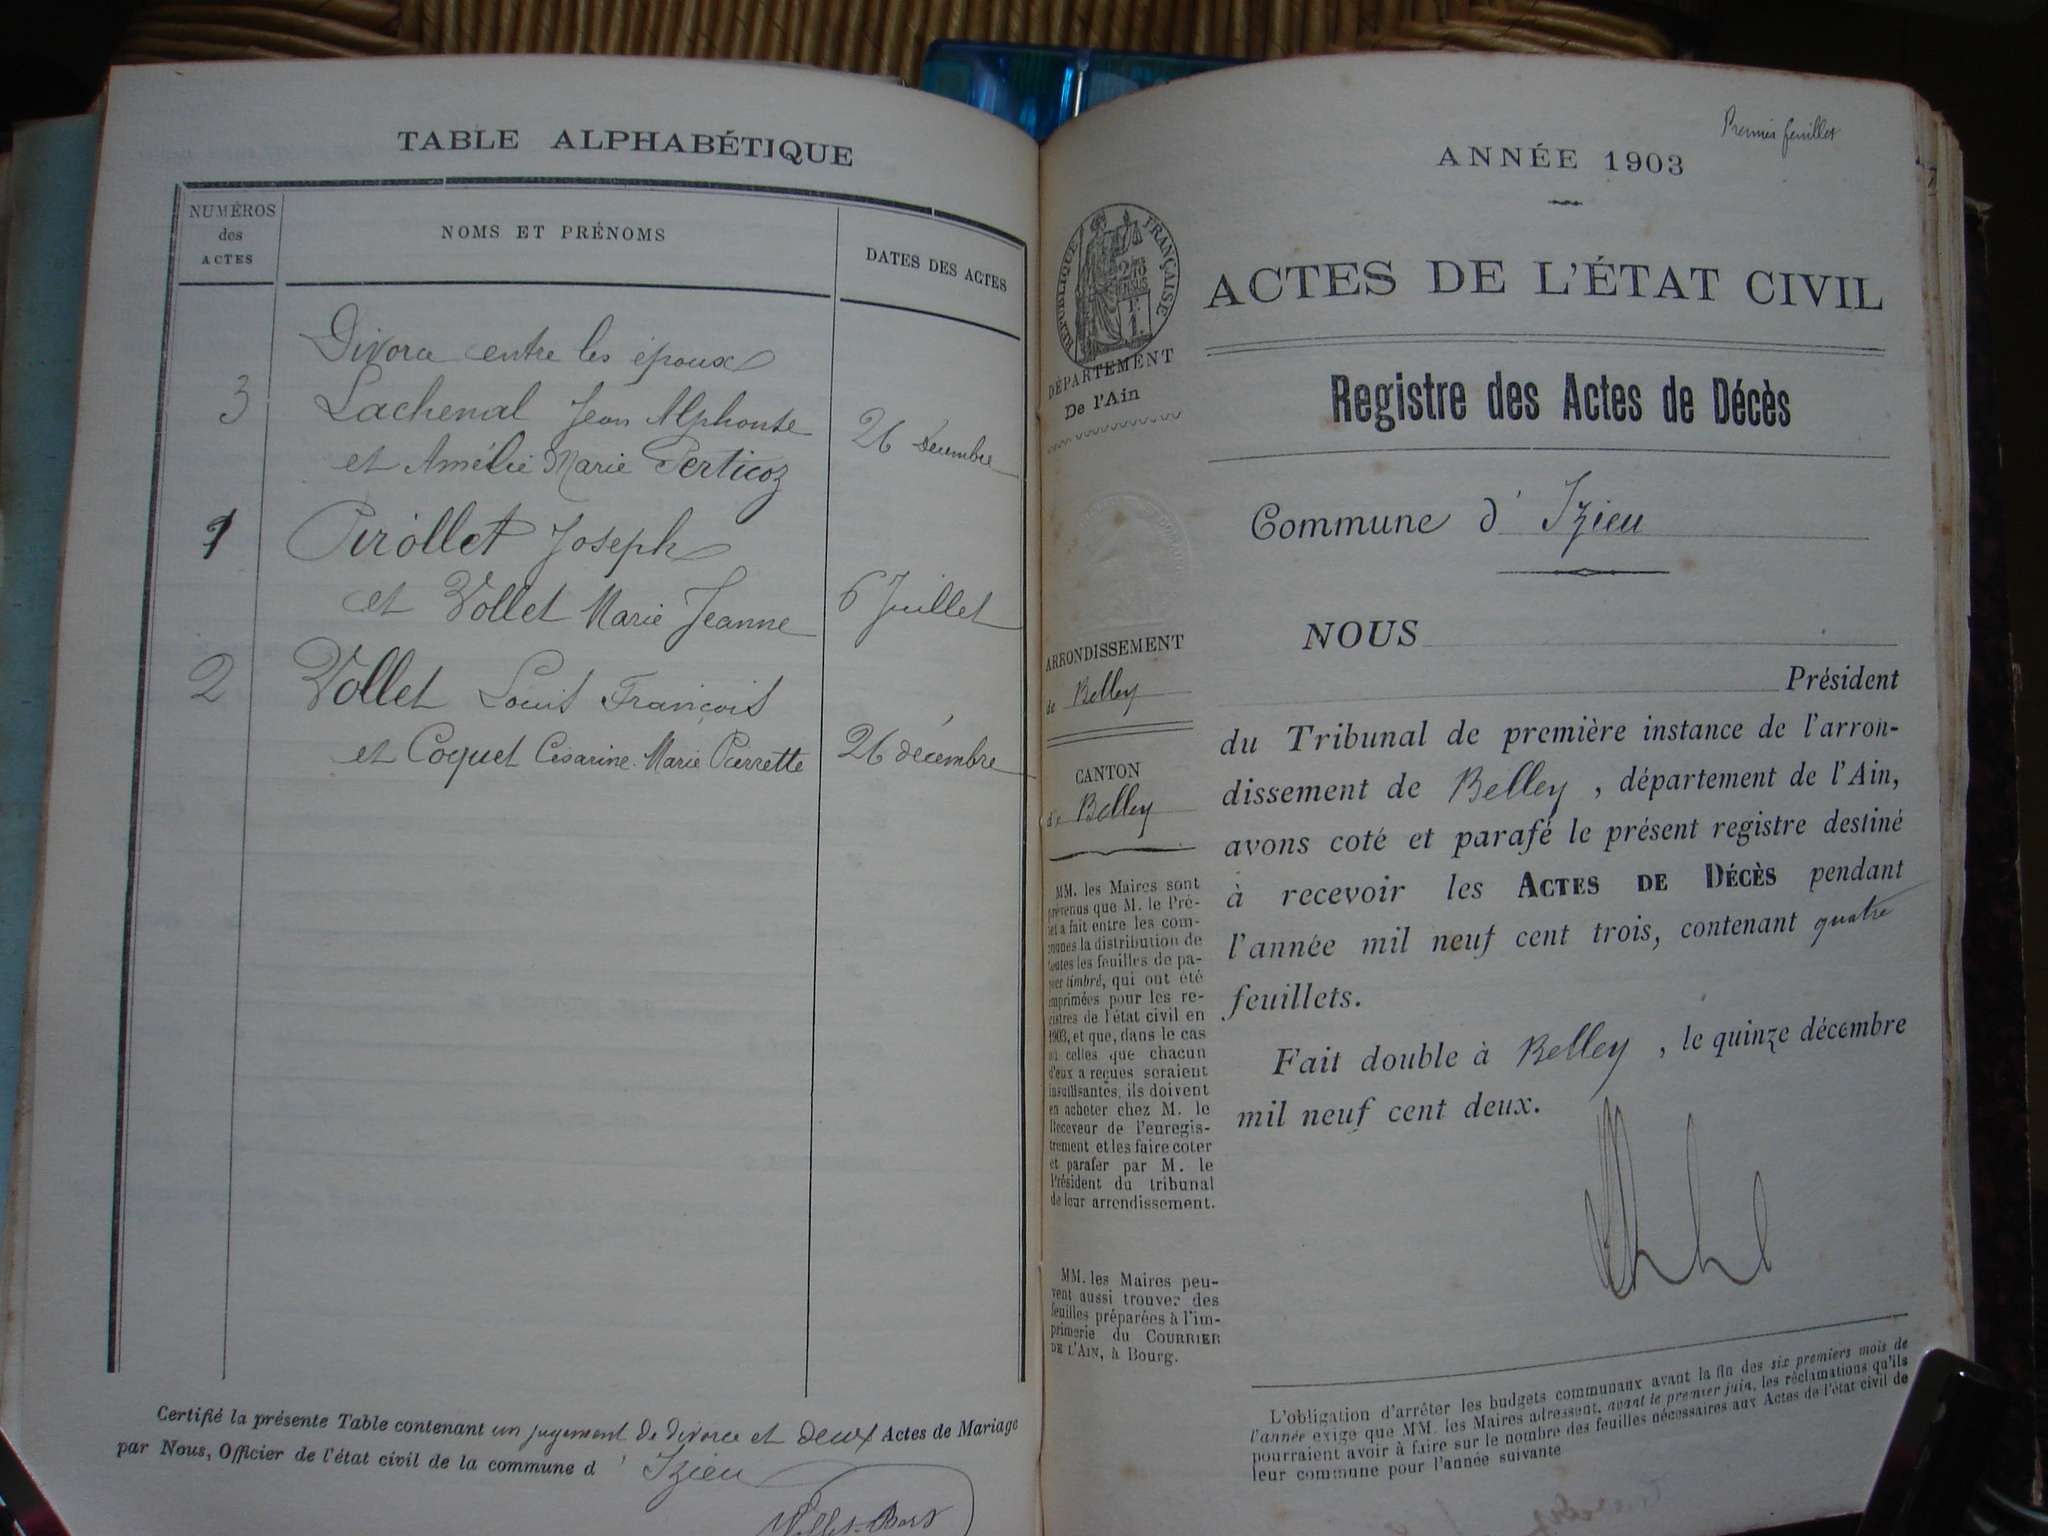 TABLE ALPHABÉTIQUE
NUMÉROS
des
ACTES
NOMS ET PRÉNOMS
DATES DES ACTES
Divorce entre les époux
3 Lachenal Jean Alphonse
et Amélie Marie Perticoz 26 décembre
1 Pirollet Joseph
et Vollet Marie Jeanne 6 Juillet
2 Vollet Louis François
et Coquet Césarine Marie Pierrette 26 décembre
Certifié la présente Table contenant un jugement de divorce et deux Actes de Mariage
par Nous, Officier de l'état civil de la commune d'Izieu
Premier feuillet
ANNÉE 1903
RÉPUBLIQUE FRANÇAISE
DÉPARTEMENT
De l'Ain
ACTES DE L'ÉTAT CIVIL
Registre des Actes de Décès
Commune d'Izieu
ARRONDISSEMENT
de Belley
CANTON
de Belley
MM. les Maires sont
prévenus que M. le Pré-
fet a fait entre les com-
munes la distribution de
toutes les feuilles de pa-
pier timbré, qui ont été
imprimées pour les re-
gistres de l'état civil en
1903, et que, dans le cas
où celles que chacun
d'eux a reçues seraient
insuffisantes, ils doivent
en acheter chez M. le
Receveur de l'enregis-
trement et les faire coter
et parafer par M. le
Président du tribunal
de leur arrondissement.
MM. les Maires peu-
vent aussi trouver des
feuilles préparées à l'im-
primerie du COURRIER
DE L'AIN, à Bourg.
NOUS
Président
du Tribunal de première instance de l'arron-
dissement de Belley, département de l'Ain,
avons coté et parafé le présent registre destiné
à recevoir les ACTES DE DÉCÈS pendant
l'année mil neuf cent trois, contenant quatre
feuillets.
Fait double à Belley, le quinze décembre
mil neuf cent deux.
L'obligation d'arrêter les budgets communaux avant la fin des six premiers mois de
l'année exige que MM. les Maires adressent, avant le premier juin, les réclamations qu'ils
pourraient avoir à faire sur le nombre des feuilles nécessaires aux Actes de l'état civil de
leur commune pour l'année suivante